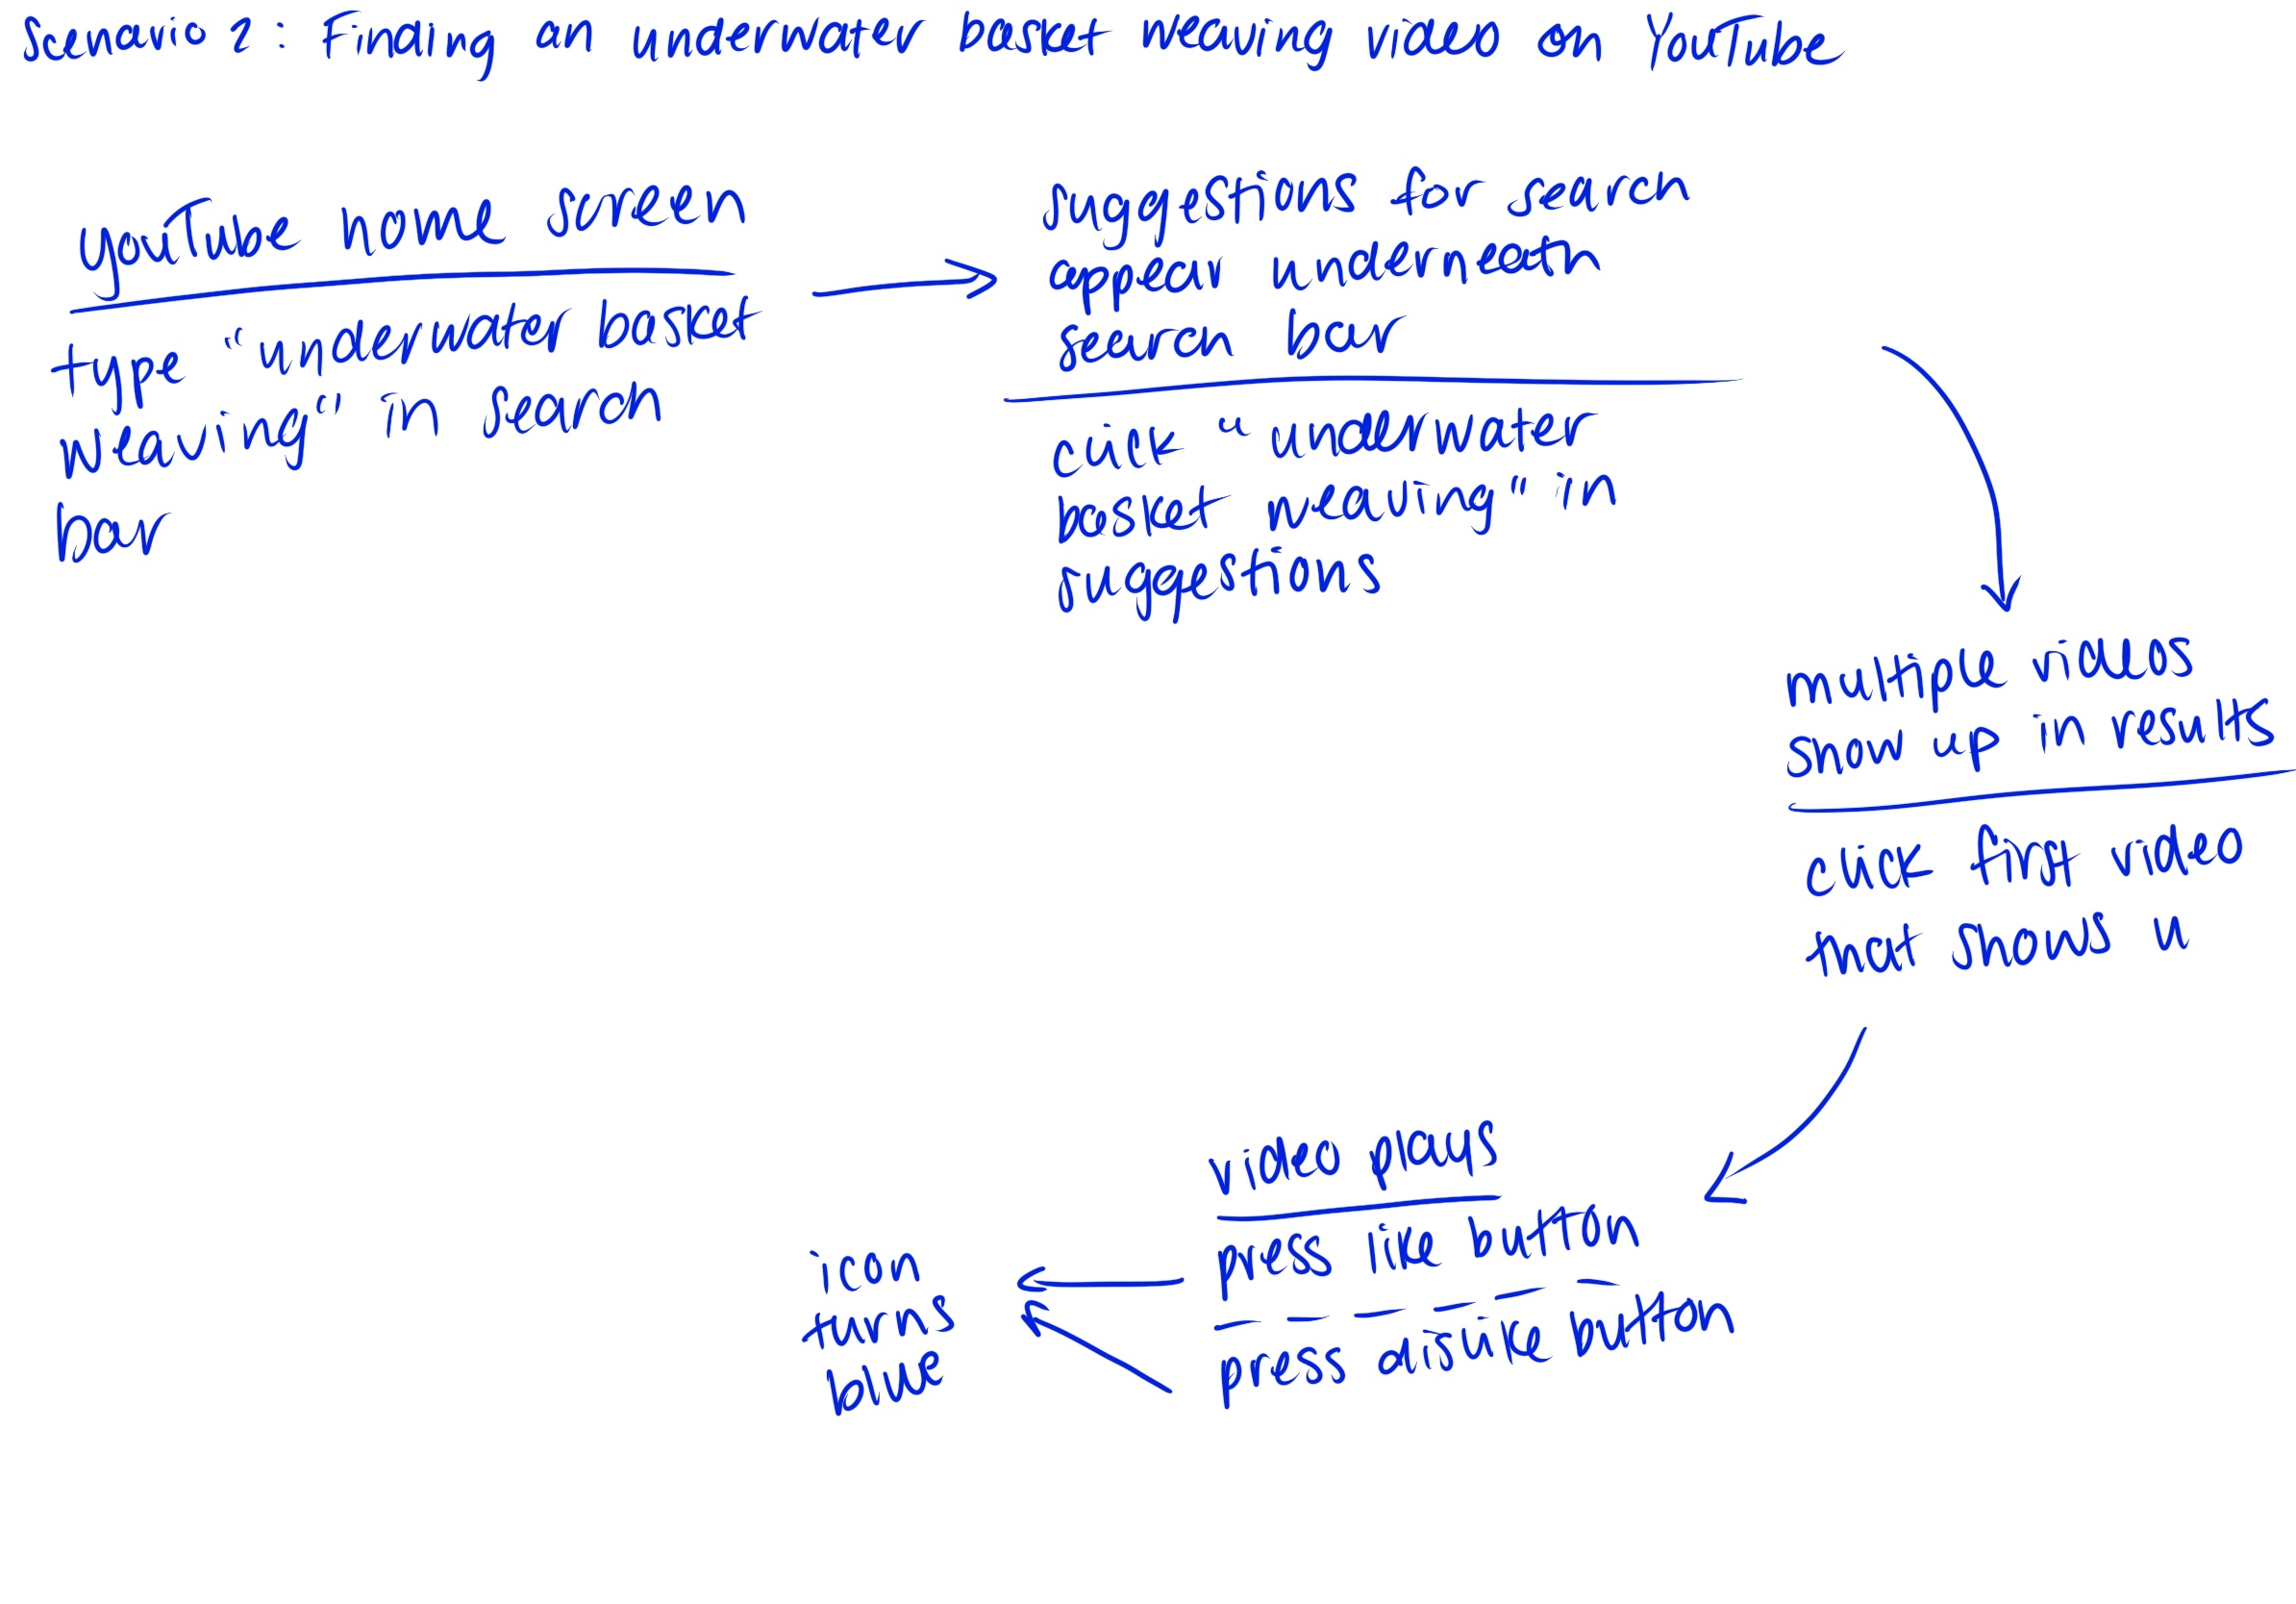 Scenario 2: Finding an underwater basket weaving video on YouTube
YouTube home screen
type "underwater basket
weaving" in search
bar
suggestions for search
appear underneath
search bar
click "underwater
basket weaving" in
suggestions
multiple videos
show up in results
click first video
that shows u
video plays
press like button
press dislike button
icon
turns
blue